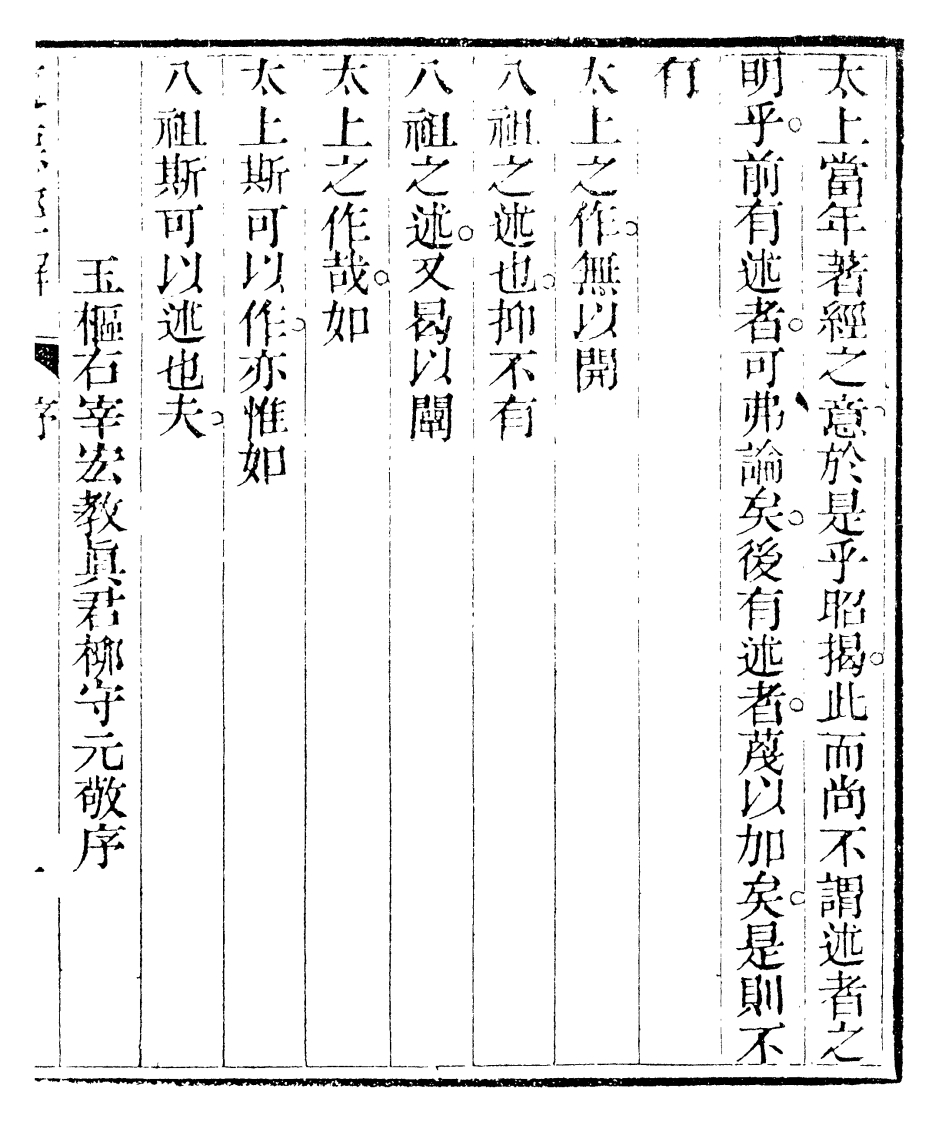 太上當年著經之意於是乎昭揭此而尚不謂述者之
明乎前有述者可弗論矣後有述者蔑以加矣是則不
有
太上之作無以開
八祖之述也抑不有
八祖之述又曷以闡
太上之作哉如
太上斯可以作亦惟如
八祖斯可以述也夫
玉樞右宰宏教眞君柳守元敬序